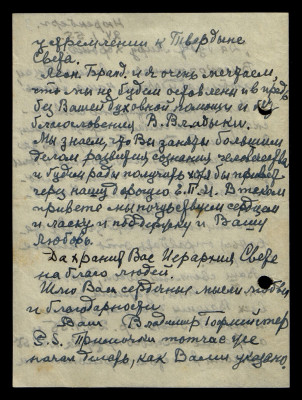 устремлении к Твердыне
Света.
Леон. Бранд. и я очень мечтаем,
что мы не будем оставлены и впредь
без Вашей духовной помощи и
благословения В. Владыки.
Мы знаем, что Вы заняты большим
делом развития сознания человечества
и будем рады получить хотя бы привет
через нашу дорогую Е.П.И. В таком
привете мы почувствуем сердцем
и ласку и поддержку и Вашу
Любовь.
Да хранит Вас Иерархия Света
на благо людей.
Шлю Вам сердечные мысли любви
и благодарности
Ваш Владимир Гофмейстер
P.S. Примочки тотчас же
начал делать, как Вами указано.